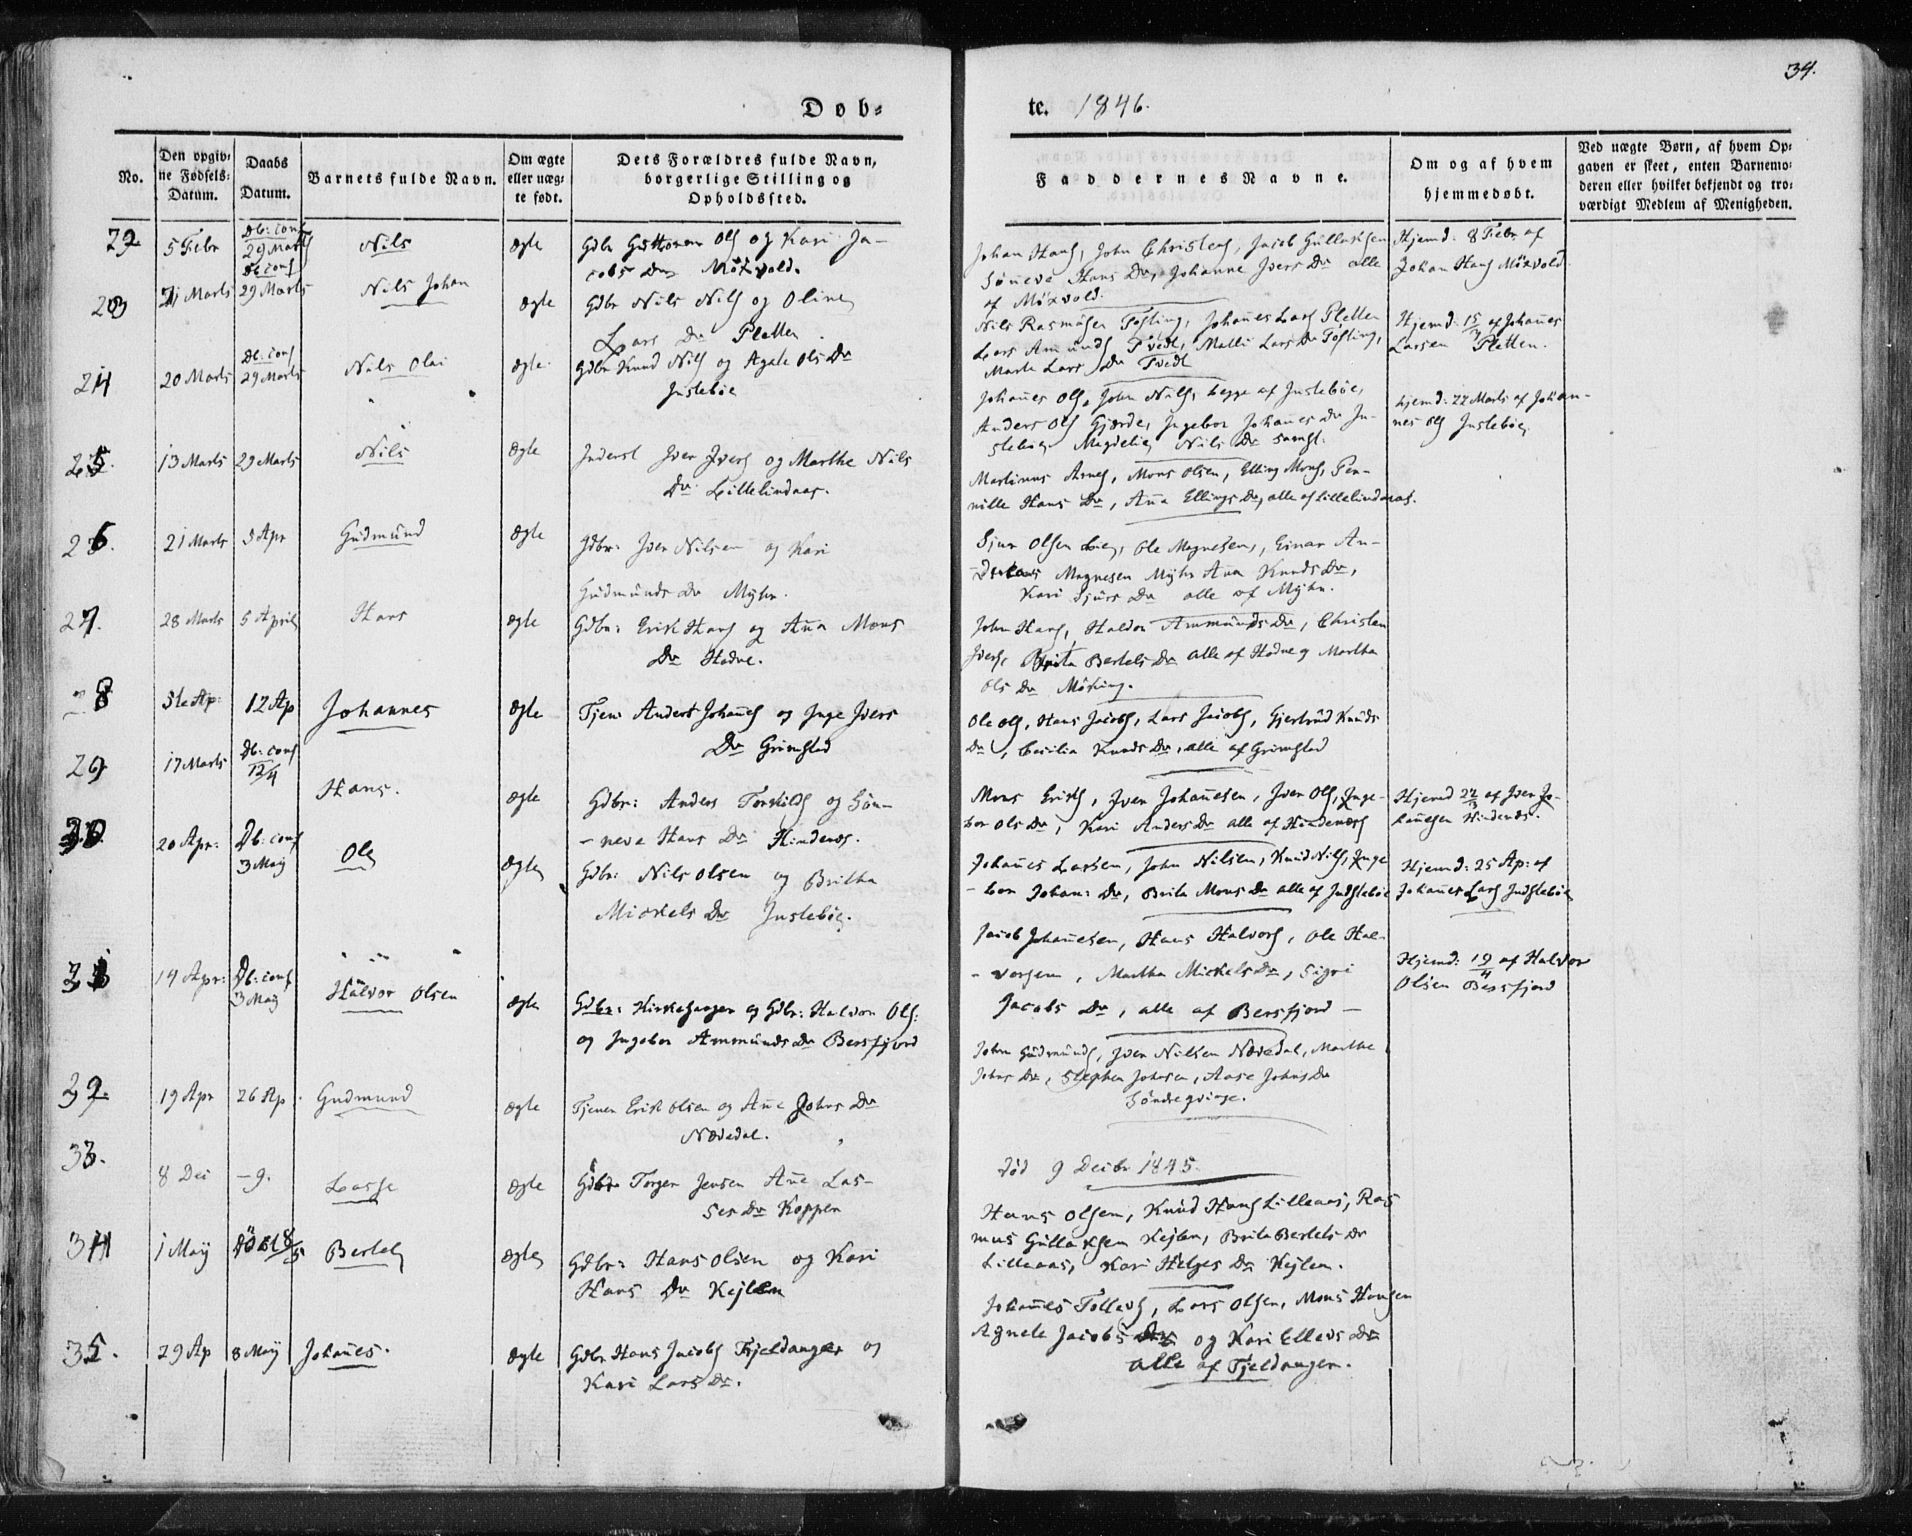 34.
Døb=
te. 1846.
No.
Den opgiv=
ne Fødsels=
Datum.
Daabs
Datum.
Barnets fulde Navn.
Om ægte
eller uæg=
te født.
Dets Forældres fulde Navn,
borgerlige Stilling og
Opholdssted.
Faddernes Navne.
Om og af hvem
hjemmedøbt.
Ved uægte Børn, af hvem Op=
gaven er skeet, enten Barnemo=
deren eller hvilket bekjendt og tro=
værdigt Medlem af Menigheden.
22 5 Febr Db: conf 29 Marts Nils Ægte Gdbr Guttorm Ols og Kari Ja-
cobs Dr Möxvold.
Johan Hans, John Christens, Jacob Gullaksen
Söneve Hans Dr, Johanne Ivers Dr alle
af Möxvold.
Hjemd: 8 Febr af
Johan Hans Möxvold
23 Marts Db conf 29 Marts Nils Johan Ægte Gdbr Nils Nils og Oline
Lars Dr Pletten
Nils Rasmusen Tofting, Johañes Lars Pletten
Lars Amunds Tvedt, Malli Lars Dr Tofting,
Marte Lars Dr Tvedt
Hjemd: 15/3 af Johañes
Larsen Pletten.
24 20 Marts Db: conf 29 Marts Nils Olai Ægte Gdbr Knud Nils og Agate Ols Dr
Justebøe
Johañes Ols, John Nils, begge af Justebøe,
Anders Ols Gjærde, Ingebor Johañes Dr Ju-
stebøe Magdeli Nils Dr samst.
hjemd: 22 Marts af Johañ-
nes Ols Justebøe
25. 13 Marts 29 Marts Nils Ægte Inderst Iver Ivers og Marthe Nils
Dr Lillelindaas.
Martinus Arnes, Mons Olsen, Elling Mons, Per-
nille Hans Dr, Aña Ellings Dr, alle af Lillelindaas.
26. 21 Marts 5 Apr Gudmund Ægte Gdbr: Iver Nilsen og Kari
Gudmunds Dr Myhr.
Sjur Olsen Ole Magnesen, Einar An-
Magnesen Myhr Aña Knuds Dr,
Kari Sjurs Dr alle af Myhr.
27. 28 Marts 5 April Hans Ægte Gdbr: Erik Hans og Aña Mons
Dr Hodne.
John Hans, Haldor Ammunds Dr, Christen
Ivers, Brita Bertels Dr alle af Hodne og Martha
Ols Dr Möking.
28 Ap 12 Ap Johannes Ægte Tjen: Anders Johañes og Inge Ivers
Dr Grimstad
Ole Ols, Hans Jacobs, Lars Jacobs, Gjertrud Knuds
Dr, Cecilia Knuds Dr, alle af Grimstad
29 17 Marts Db: conf 12/4 Hans. Ægte Gdbr: Anders Torkilds og Sön-
-neve Hans Dr Hindenæs.
Mons Eriks, Iver Johañesen, Iver Ols, Inge-
bor Ols Dr, Kari Anders Dr alle af Hindenæs
Hjemd 22/3 af Iver Jo-
hañesen Hindenæs.
30. 20 Apr: Db: conf 3 Maÿ Ole Ægte Gdbr: Nils Olsen og Britha
Mickels Dr Justebøe.
Johañes Larsen, John Nilsen, Knud Nils, Inge
-bor Johan: Dr, Brita Mons Dr alle af Judstebøe
Hjemd: 25 Ap: af
Johañes Lars Judstebøe
31 14 Apr: Db: conf 3 Maÿ Halvor Olsen Ægte Gdbr: Kirkesanger og Gdbr: Halvor Ols:
og Ingebor Ammunds Dr Bersfjord
Jacob Johañesen, Hans Halvors, Ole Hal-
-vorsen, Martha Mickels Dr, Sigri
Jacobs Dr, alle af Bersfjord -
Hjemd: 19/4 af Halvor
Olsen Bersfjord
32. 19 Apr 26 Ap. Gudmund Ægte Tjener Erik Olsen og Añe Johns Dr
Nævedal.
John Gudmunds, Iver Nilsen Nævedal, Marthe
Johns Dr, Stephen Johnsen, Aase Johns Dr
Søndreqvinge.
33. 8 Dec -9. Lasse Ægte Gdbr Torger Jensen Añe Las-
ses Dr Koppen
död 9 Decbr 1845.
34 1 Maÿ Döbt 8/5 Bertel Ægte Gdbr: Hans Olsen og Kari
Hans Dr Kejlen
Hans Olsen, Knud Hans Lilleaas, Ras
mus Gullaksen Kejlen, Brita Bertels Dr
Lilleaas, Kari Helges Dr Kejlen.
35. 29 Ap 8 Maÿ Johañes. Ægte Gdbr Hans Jacobs Fjeldanger og
Kari Lars Dr.
Johañes Tollevs, Lars Olsen, Mons Hansen
Agnete Jacobs Dr og Kari Ellevs Dr
alle af Fjeldanger.